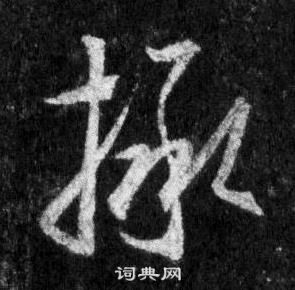 拯
词典网